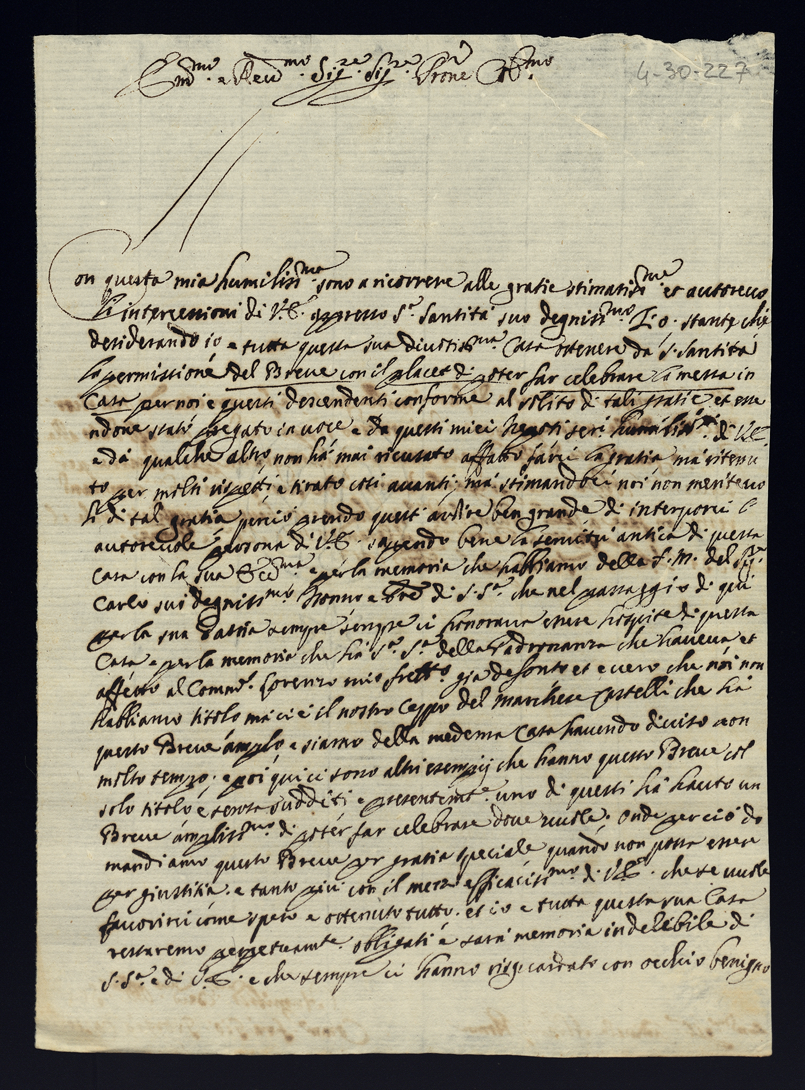 Em.mo e Rev.mo Sig.re Sig.re Prone Col.mo
4-30-227
Con questa mia humilis.ma sono a ricorrere alle gratie stimatis.me et autorevo
li intercessioni di V.E. appresso S.a Santità suo degnis.mo Zio. stante che
desiderando io e tutta questa sua divotis.ma Casa ottenere da S. Santità
la permissione del Breve con il placet di poter far celebrare la messa in
Casa per noi e questi descendenti conforme al solito di tali gratie et esse
ndone stato pregato in voce e da questi miei nepoti ser.i humilis.mi di V.E.
e da qualche altro non ha mai ricusato affatto farci la gratia ma ritenu
to per molti rispetti e tirato così avanti; ma stimandoci noi non meritevo
li di tal gratia perciò prendo quest'ardire ben grande di interporci l'
autorevole persona di V.E. sapendo bene la servitù antica di questa
Casa con la sua Ecc.ma e per la memoria che habbiamo della S.M. del Sig.r
Carlo suo degnis.mo Nonno e di S. S.tà che nel passaggio di qui
per la sua Patria sempre sempre ci honorava essere hospite di questa
Casa e per la memoria che ha S.a S.tà della Padronanza che haveva et
affetto al Comm.r Lorenzo mio frett.o già defonto et è vero che noi non
habbiamo titolo ma ci è il nostro Ceppo del Marchese Castelli che ha
questo Breve amplo e siamo della medema Casa havendo diviso non
molto tempo. e poi qui ci sono altri esempij che hanno questo Breve col
solo titolo e senza sudditi e presentem.te uno di questi ha hauto un
Breve amplis.mo di poter far celebrare dove vuole. onde perciò do
mandiamo questo Breve per gratia speciale quando non possa essere
per giustitia. e tanto più con il mezzo efficacis.mo di V.E. che se vuole
favorirci come spero e ottenuto tutto. et io e tutta questa sua Casa
restaremo perpetuam.te obbligati e sarà memoria indelebile di
S. S.tà e di V.E. e che sempre ci hanno risguardato con occhio benigno